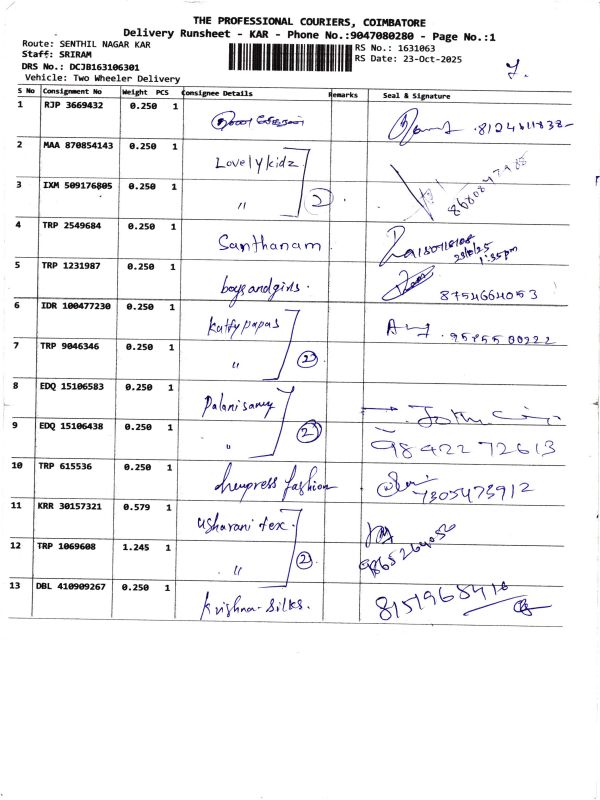 THE PROFESSIONAL COURIERS, COIMBATORE
Delivery Runsheet - KAR - Phone No.:9047080280 - Page No.:1
Route: SENTHIL NAGAR KAR
Staff: SRIRAM
DRS No.: DCJB163106301
Vehicle: Two Wheeler Delivery
RS No.: 1631063
RS Date: 23-Oct-2025
S No Consignment No Weight PCS Consignee Details Remarks Seal & Signature
1 RJP 3669432 0.250 1
2 MAA 870854143 0.250 1 Lovely kidz
3 IXM 509176805 0.250 1 " 2
4 TRP 2549684 0.250 1 Santhanam 1:35pm
5 TRP 1231987 0.250 1 boysandgirls. 8754664053
6 IDR 100477230 0.250 1 Kuttypapas
7 TRP 9046346 0.250 1 " 2
8 EDQ 15106583 0.250 1 Palanisamy
9 EDQ 15106438 0.250 1 " 2 98422 72613
10 TRP 615536 0.250 1 fashion 7305473912
11 KRR 30157321 0.579 1 usharani tex.
12 TRP 1069608 1.245 1 " 2
13 DBL 410909267 0.250 1 Krishna-Silks.